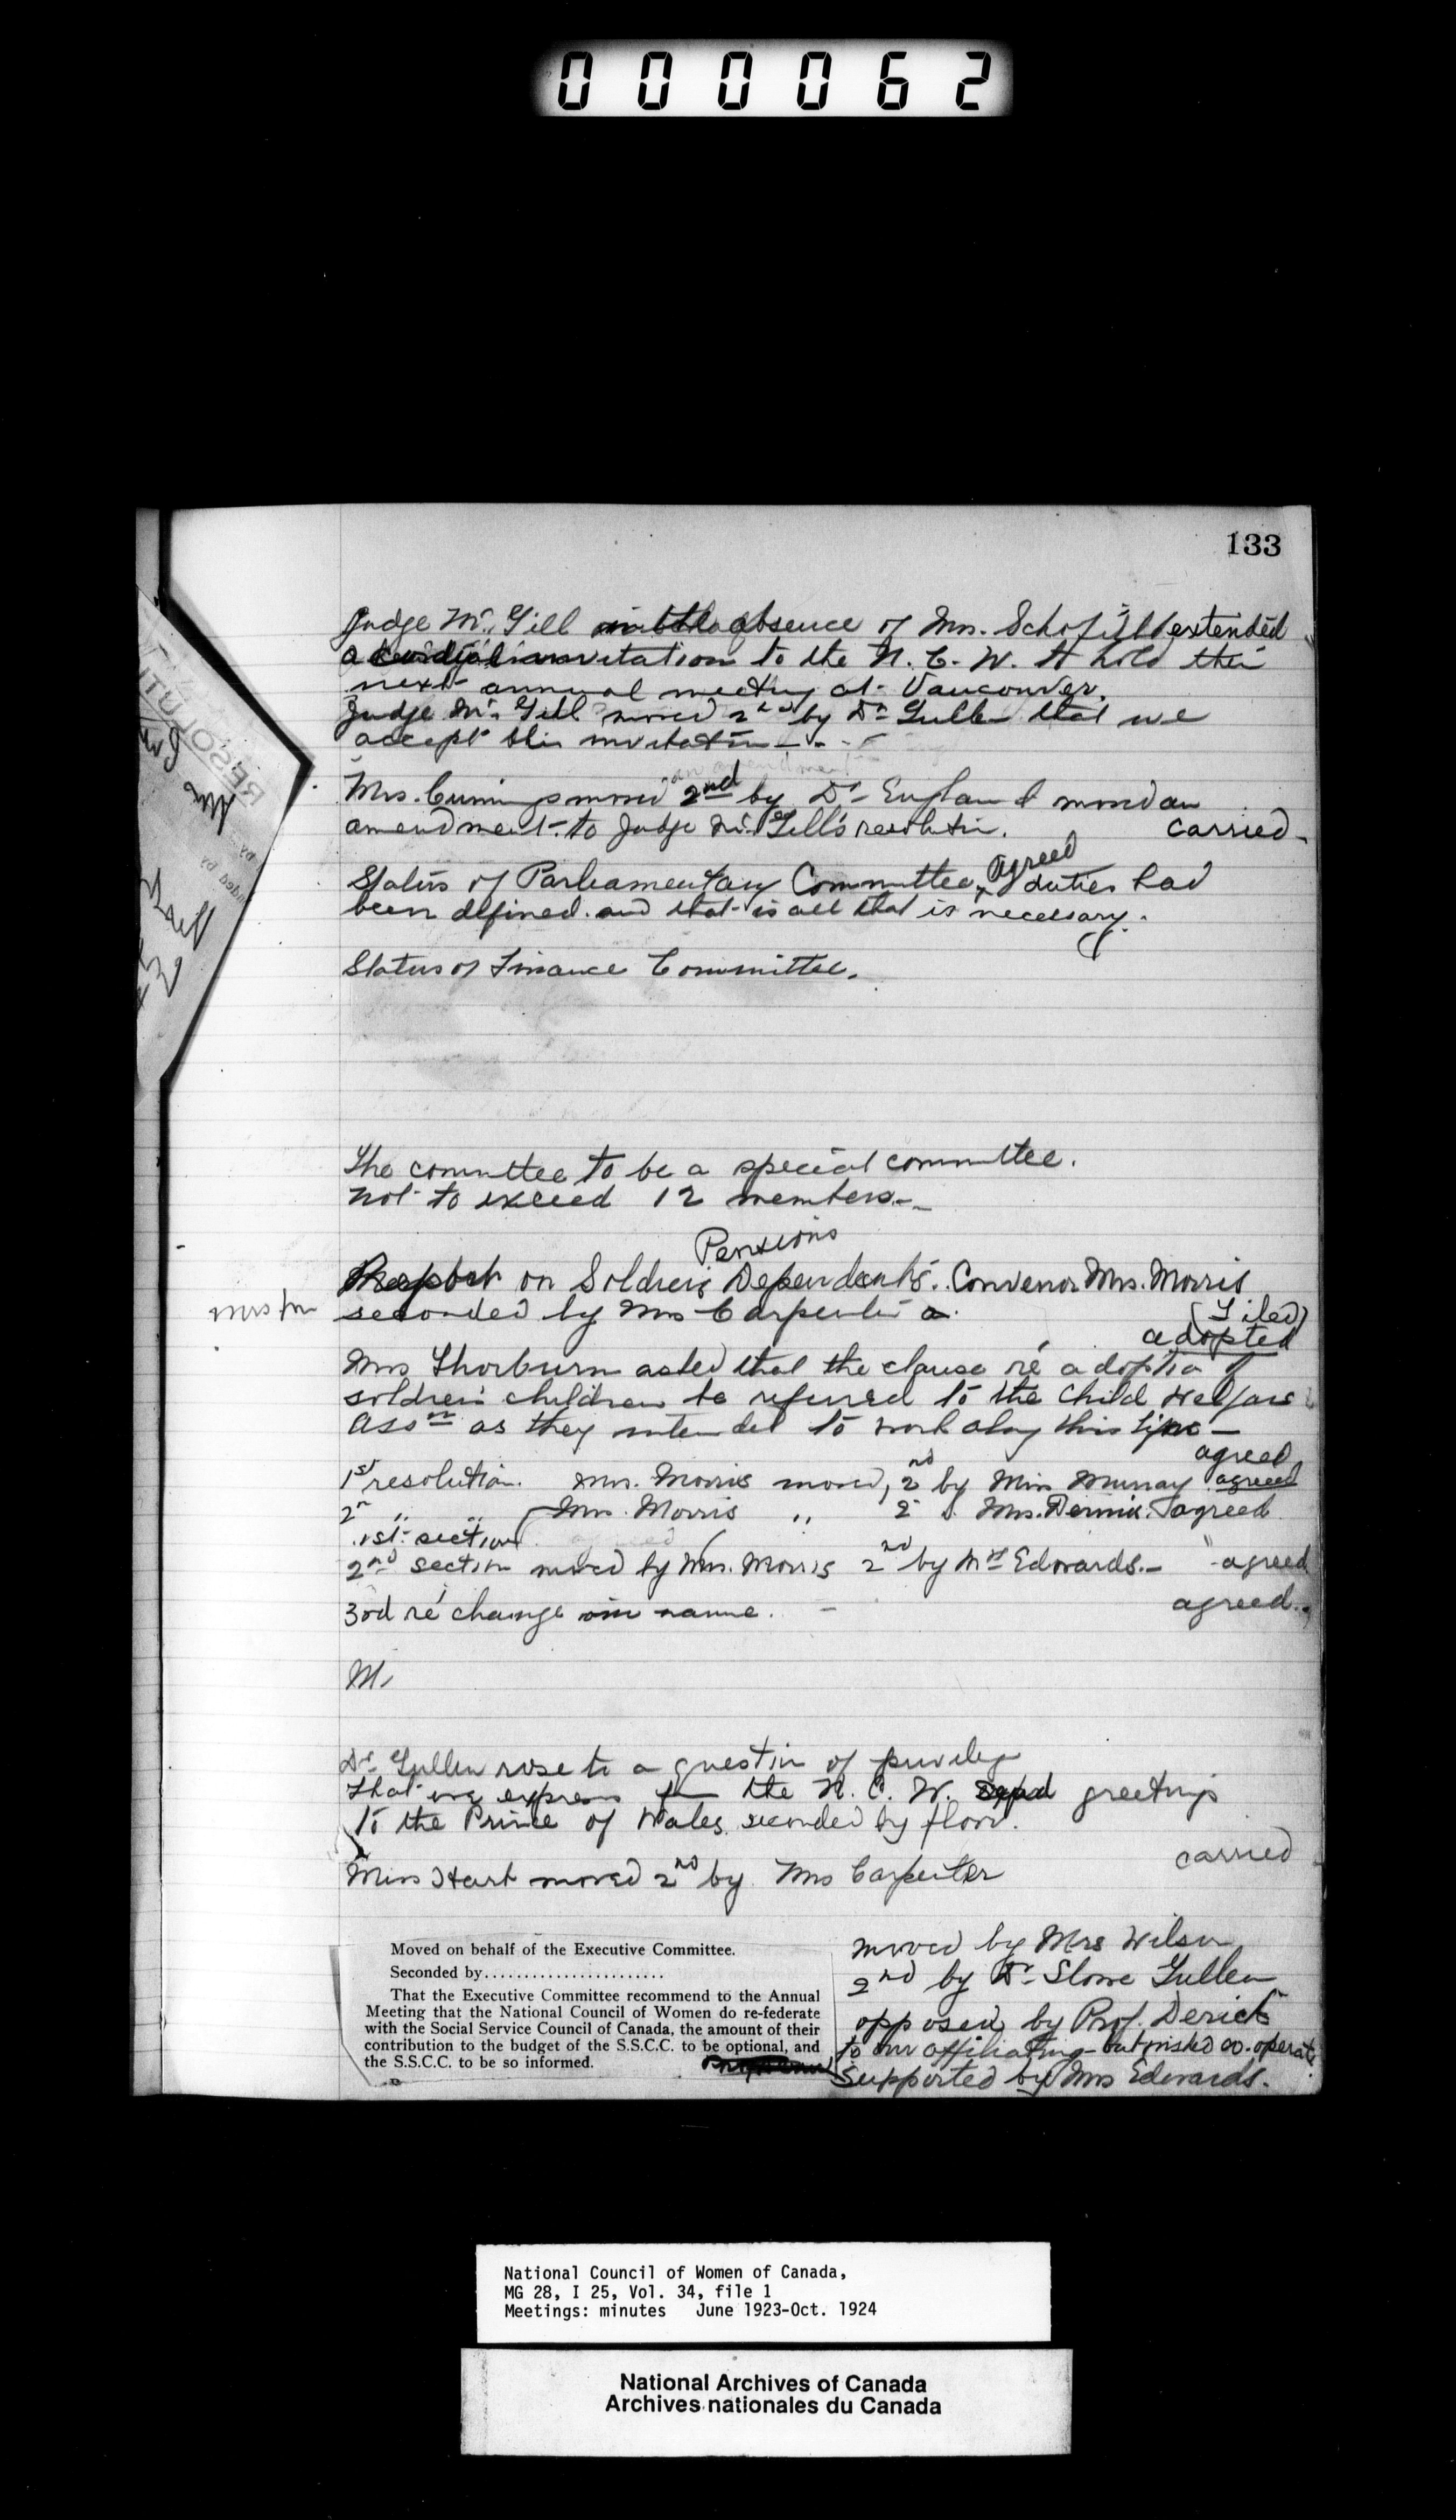 000062
133
Judge Mc. Gill in the absence of Mrs. Schofield extended
a cordial invitation to the N. C. W. to hold their
next annual meeting at Vancouver.
Judge Mc. Gill moved 2nd by Dr Gullen that we
accept this invitation
an amendment
Mrs. Cummings moved 2nd by Dr England moved an
amendment to Judge Mc. Gill's resolution. carried
agreed
Status of Parliamentary Committee, duties had
been defined. and that is all that is necessary.
Status of Finance Committee.
The committee to be a special committee.
not to exceed 12 members.
Pensions
Report on Soldiers Dependents. Convenor Mrs. Morris
Mrs
seconded by Mrs Carpenter (Filed)
adopted
Mrs Thorburn asked that the clause ré adoption of
soldiers children be referred to the Child Welfare
Assn as they intended to work along this line
agreed
1st resolution. Mrs. Morris moved, 2nd by Miss Murray agreed
2n " " Mrs. Morris " 2 Mrs. agreed
1st. section
2nd section moved by Mrs. Morris 2nd by Mrs Edwards. agreed
3rd ré change in name. agreed.
M
Dr Gullen rose to a question of privilege
That we express the N. C. W. greetings
to the Prince of Wales. seconded by floor.
carried
Miss Hart moved 2nd by Mrs Carpenter
Moved on behalf of the Executive Committee.
Seconded by.......................
That the Executive Committee recommend to the Annual
Meeting that the National Council of Women do re-federate
with the Social Service Council of Canada, the amount of their
contribution to the budget of the S.S.C.C. to be optional, and
the S.S.C.C. to be so informed.
moved by Mrs Wilson
2nd by Dr Stowe Gullen
opposed by Prof. Derick
to our affiliating but wished co-operate
Supported by Mrs Edwards.
National Council of Women of Canada,
MG 28, I 25, Vol. 34, file 1
Meetings: minutes June 1923-Oct. 1924
National Archives of Canada
Archives nationales du Canada